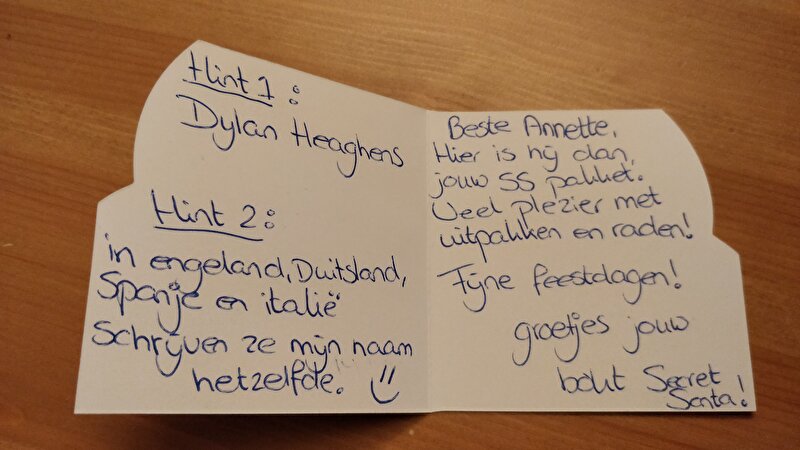 Hint 1:
Dylan Heaghens
Hint 2:
in engeland, Duitsland,
Spanje en italië
Schrijven ze mijn naam
hetzelfde. :)
Beste Annette,
Hier is hij dan,
jouw SS pakket.
Veel plezier met
uitpakken en raden!
Fijne feestdagen!
groetjes jouw
bout Secret
Santa!